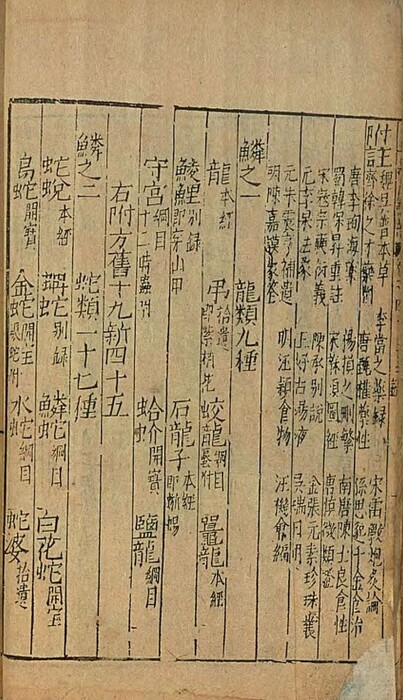 附註 魏吳普本草 李當之藥錄 宋雷斅炮炙論
齊徐之才藥對 唐甄權藥性 孫思邈千金食治
唐李珣海藥 楊損之刪繁 南唐陳士良食性
蜀韓保昇重註 宋蘇頌圖經
宋寇宗奭衍義 陳承別說 金張元素珍珠囊
元李杲法象 王好古湯液 吳瑞日用
元朱震亨補遺 明汪穎食物 汪機會編
明陳嘉謨蒙筌
鱗之一 龍類九種
龍本經 弔拾遺即紫梢花 蛟龍綱目蜃附 鼉龍本經
鯪鯉別錄即穿山甲 石龍子本經即蜥蜴
守宮綱目十二時蟲附 蛤蚧開寶 鹽龍綱目
右附方舊十九新四十五
鱗之二 蛇類一十七種
蛇蛻本經 蚺蛇別錄 鱗蛇綱目 白花蛇開寶
烏蛇開寶 金蛇開寶銀蛇附 水蛇綱目 蛇婆拾遺